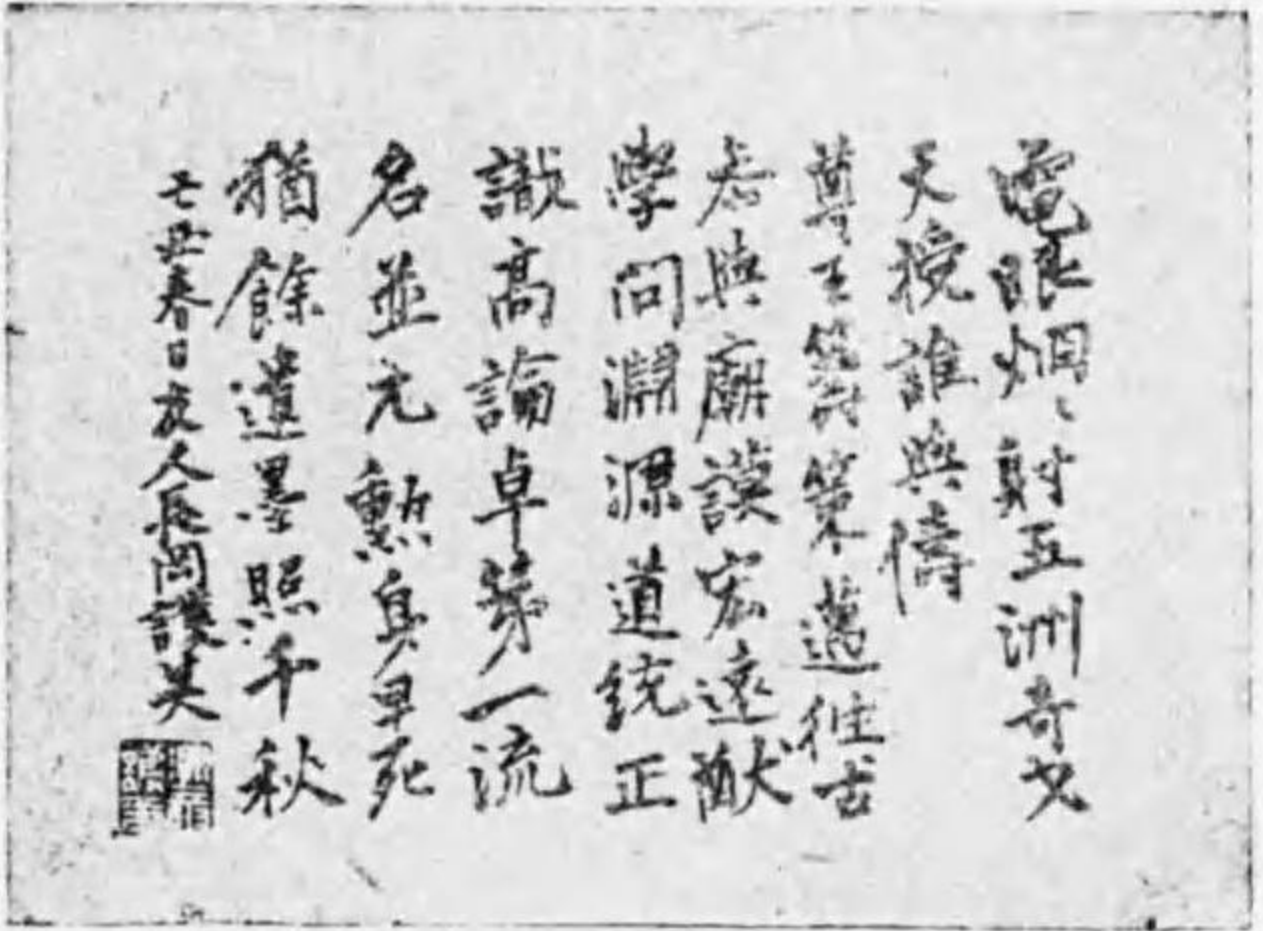 電眼烱〻射亞洲奇才
天授誰與儔
尊王籌策邁往古
参與廟謨宏遠猷
學問淵源道統正
識高論卓第一流
名並元勲身早死
猶餘遺墨照千秋
丑春日友人長岡護美